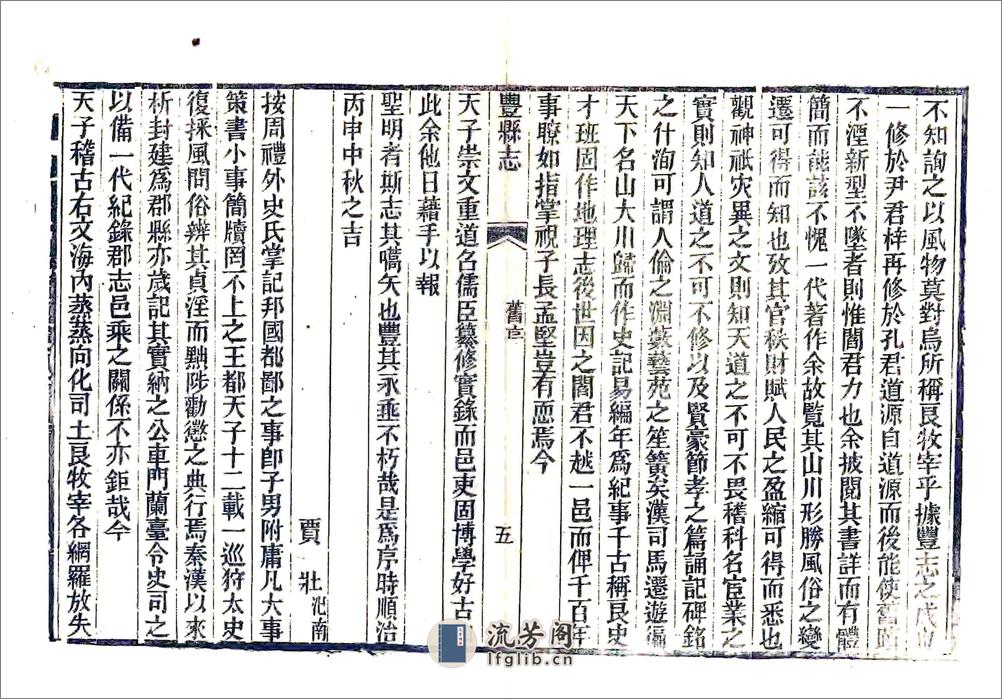 不知詢之以風物莫對烏所稱良牧宰乎據豐志之成也
一修於尹君梓再修於孔君道源自道源而後能使舊蹟
不湮新型不墜者則惟閻君力也余披閱其書詳而有體
簡而能該不愧一代著作余故覽其山川形勝風俗之變
遷可得而知也攷其官秩財賦人民之盈縮可得而悉也
觀神祇災異之文則知天道之不可不畏稽科名宦業之
實則知人道之不可不修以及賢豪節孝之篇誦記碑銘
之什洵可謂人倫之淵藪藝苑之笙簧矣漢司馬遷遊徧
天下名山大川歸而作史記易編年為紀事千古稱良史
才班固作地理志後世因之閻君不越一邑而俾千百年
事瞭如指掌視子長孟堅豈有恧焉今
豐縣志
舊序
五
天子崇文重道名儒臣纂修實錄而邑吏固博學好古
此余他日藉手以報
聖明者斯志其嚆矢也豐其永垂不朽哉是為序時順治
丙申中秋之吉
賈壯 汜南
按周禮外史氏掌記邦國都鄙之事卽子男附庸凡大事
策書小事簡牘罔不上之王都天子十二載一巡狩太史
復採風問俗辨其貞淫而黜陟勸懲之典行焉秦漢以來
析封建為郡縣亦歲記其實納之公車門蘭臺令史司之
以備一代紀錄郡志邑乘之關係不亦鉅哉今
天子稽古右文海內蒸蒸向化司土良牧宰各網羅放失
流芳阁
lfglib.cn